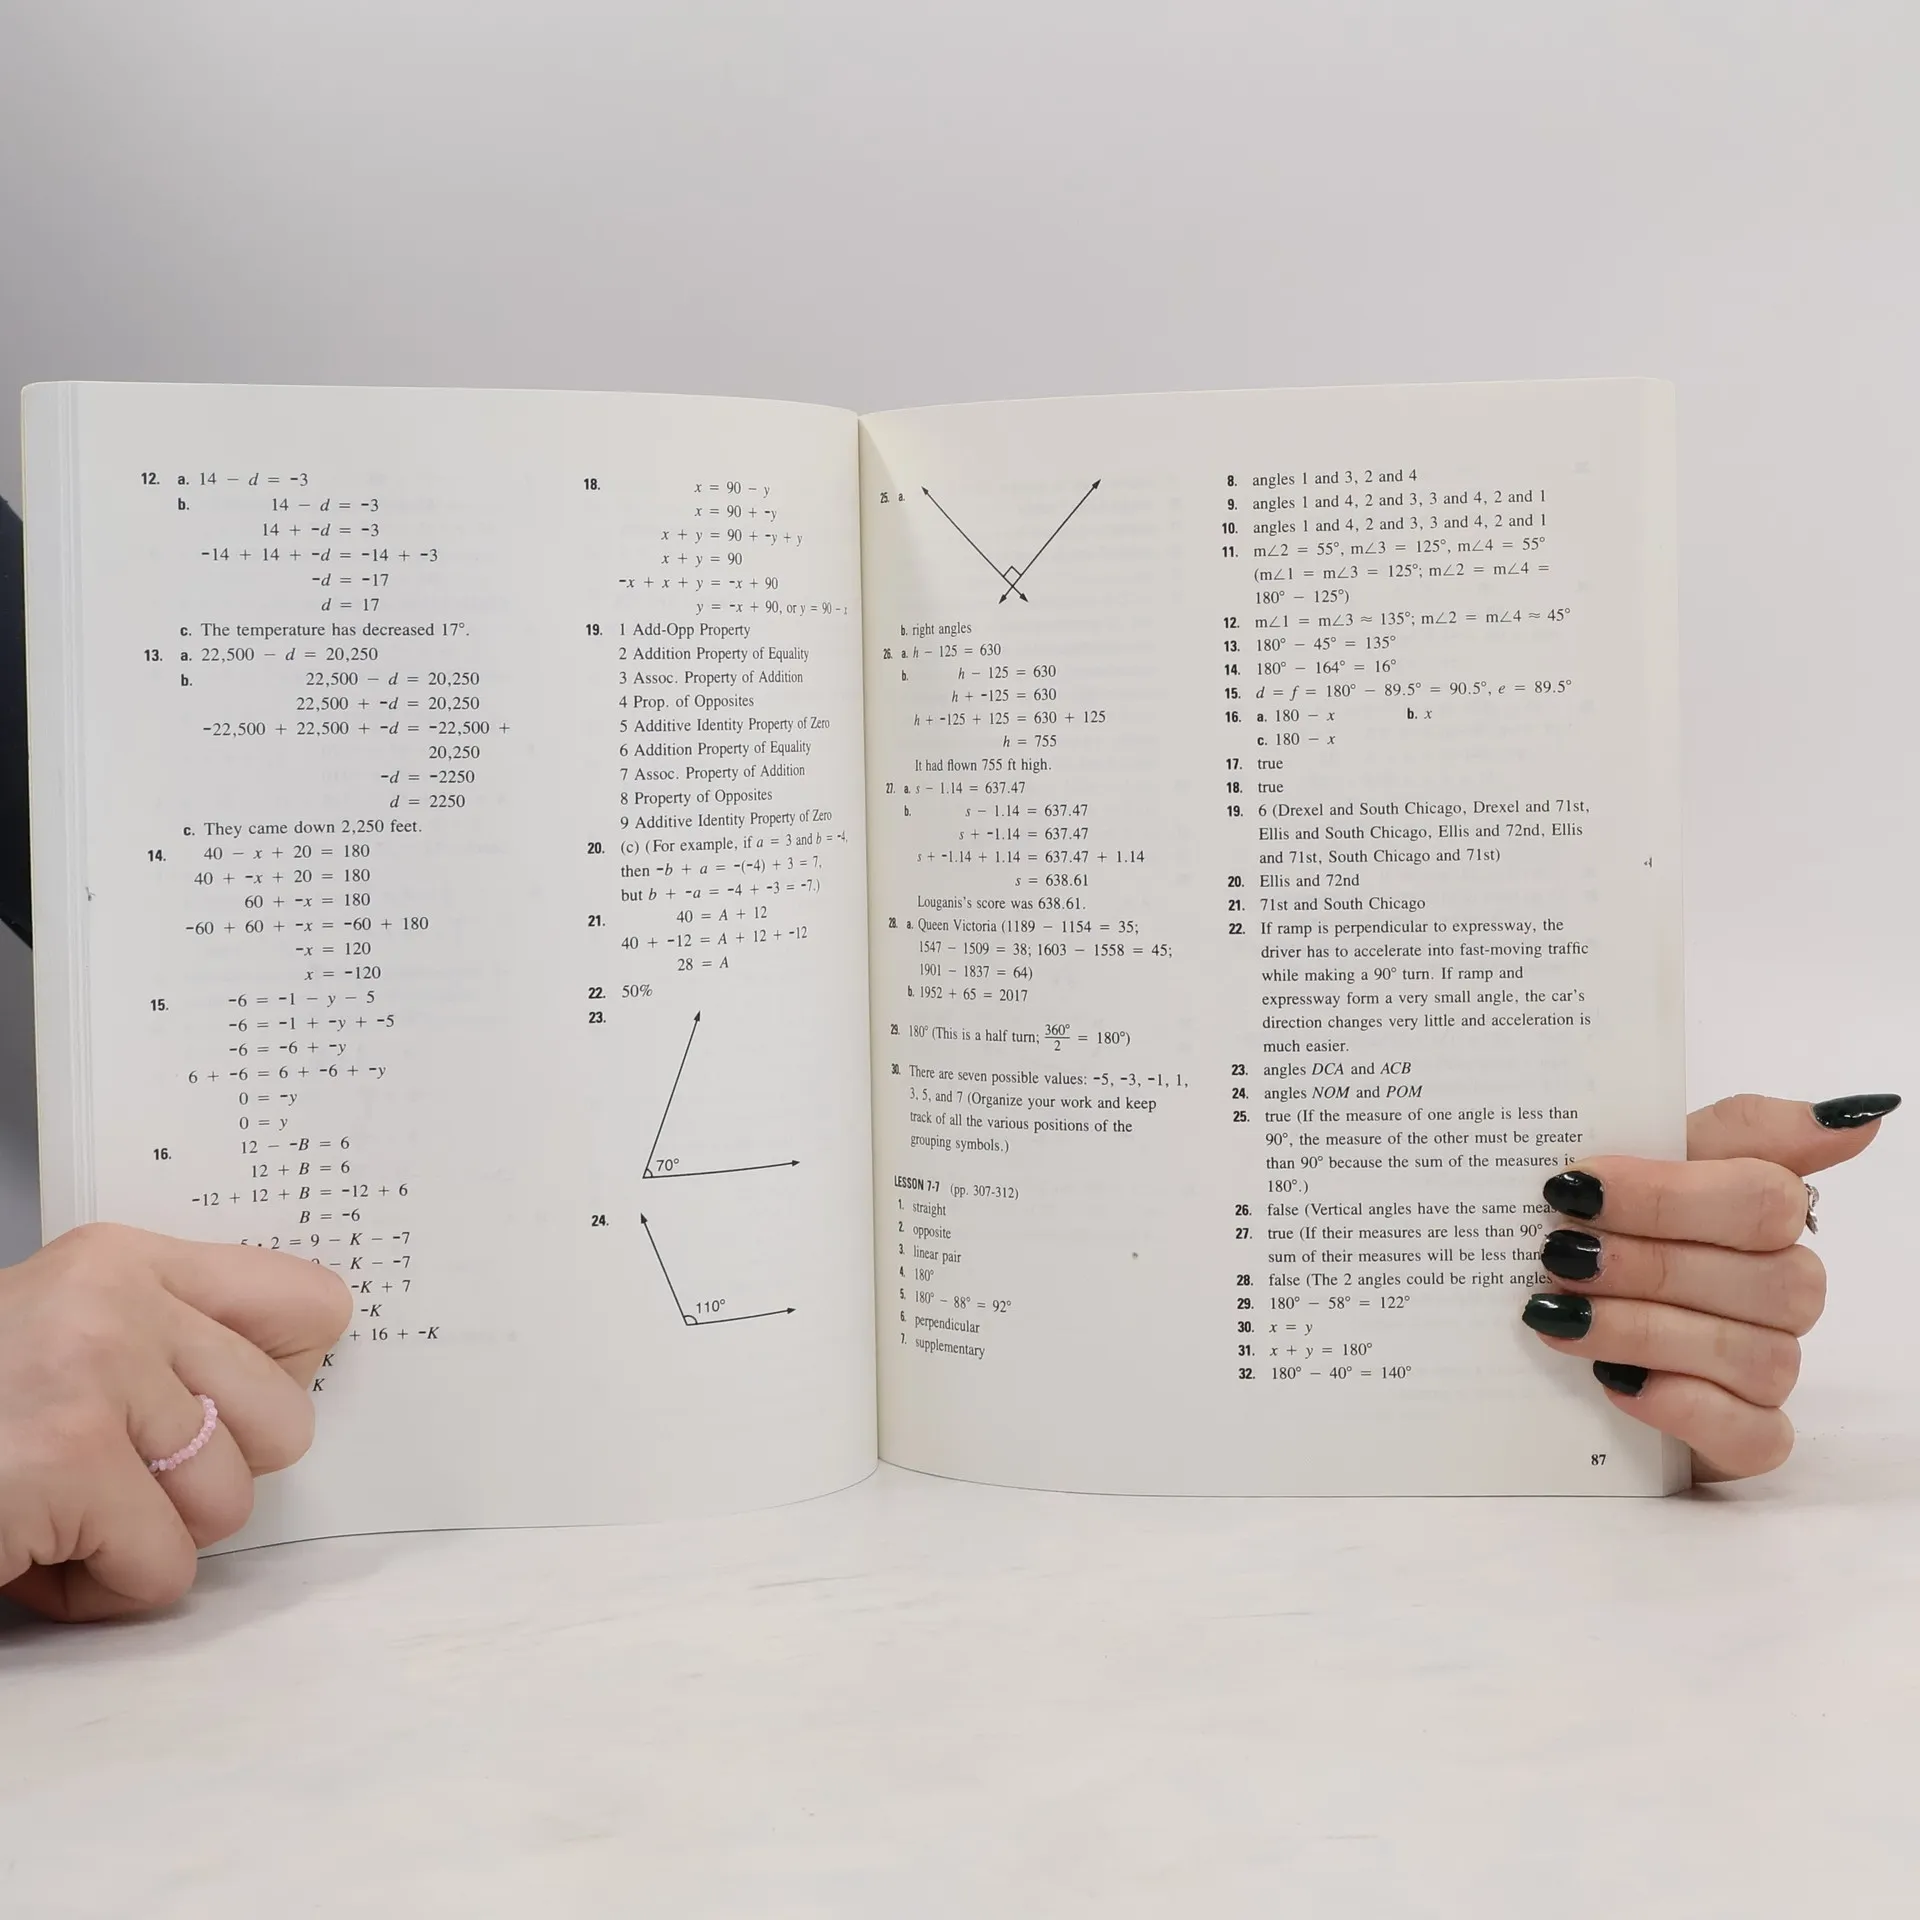 12. a. 14 – d = -3
b. 14 – d = -3
14 + -d = -3
-14 + 14 + -d = -14 + -3
-d = -17
d = 17
c. The temperature has decreased 17°.
13. a. 22,500 – d = 20,250
b. 22,500 – d = 20,250
22,500 + -d = 20,250
-22,500 + 22,500 + -d = -22,500 +
20,250
-d = -2250
d = 2250
c. They came down 2,250 feet.
14. 40 – x + 20 = 180
40 + -x + 20 = 180
60 + -x = 180
-60 + 60 + -x = -60 + 180
-x = 120
x = -120
15. -6 = -1 – y – 5
-6 = -1 + -y + -5
-6 = -6 + -y
6 + -6 = 6 + -6 + -y
0 = -y
0 = y
16. 12 – -B = 6
12 + B = 6
-12 + 12 + B = -12 + 6
B = -6
· 2 = 9 – K – -7
– K – -7
-K + 7
-K
+ 16 + -K
K
K
18. x = 90 – y
x = 90 + -y
x + y = 90 + -y + y
x + y = 90
-x + x + y = -x + 90
y = -x + 90, or y = 90 – x
19. 1 Add-Opp Property
2 Addition Property of Equality
3 Assoc. Property of Addition
4 Prop. of Opposites
5 Additive Identity Property of Zero
6 Addition Property of Equality
7 Assoc. Property of Addition
8 Property of Opposites
9 Additive Identity Property of Zero
20. (c) (For example, if a = 3 and b = -4,
then -b + a = -(-4) + 3 = 7,
but b + -a = -4 + -3 = -7.)
21. 40 = A + 12
40 + -12 = A + 12 + -12
28 = A
22. 50%
23.
70°
24.
110°
25. a.
b. right angles
26. a. h – 125 = 630
b. h – 125 = 630
h + -125 = 630
h + -125 + 125 = 630 + 125
h = 755
It had flown 755 ft high.
27. a. s – 1.14 = 637.47
b. s – 1.14 = 637.47
s + -1.14 = 637.47
s + -1.14 + 1.14 = 637.47 + 1.14
s = 638.61
Louganis's score was 638.61.
28. a. Queen Victoria (1189 – 1154 = 35;
1547 – 1509 = 38; 1603 – 1558 = 45;
1901 – 1837 = 64)
b. 1952 + 65 = 2017
29. 180° (This is a half turn; 360°/2 = 180°)
30. There are seven possible values: -5, -3, -1, 1,
3, 5, and 7 (Organize your work and keep
track of all the various positions of the
grouping symbols.)
LESSON 7-7 (pp. 307-312)
1. straight
2. opposite
3. linear pair
4. 180°
5. 180° – 88° = 92°
6. perpendicular
7. supplementary
8. angles 1 and 3, 2 and 4
9. angles 1 and 4, 2 and 3, 3 and 4, 2 and 1
10. angles 1 and 4, 2 and 3, 3 and 4, 2 and 1
11. m∠2 = 55°, m∠3 = 125°, m∠4 = 55°
(m∠1 = m∠3 = 125°; m∠2 = m∠4 =
180° – 125°)
12. m∠1 = m∠3 ≈ 135°; m∠2 = m∠4 ≈ 45°
13. 180° – 45° = 135°
14. 180° – 164° = 16°
15. d = f = 180° – 89.5° = 90.5°, e = 89.5°
16. a. 180 – x b. x
c. 180 – x
17. true
18. true
19. 6 (Drexel and South Chicago, Drexel and 71st,
Ellis and South Chicago, Ellis and 72nd, Ellis
and 71st, South Chicago and 71st)
20. Ellis and 72nd
21. 71st and South Chicago
22. If ramp is perpendicular to expressway, the
driver has to accelerate into fast-moving traffic
while making a 90° turn. If ramp and
expressway form a very small angle, the car's
direction changes very little and acceleration is
much easier.
23. angles DCA and ACB
24. angles NOM and POM
25. true (If the measure of one angle is less than
90°, the measure of the other must be greater
than 90° because the sum of the measures is
180°.)
26. false (Vertical angles have the same
27. true (If their measures are less than 90°
sum of their measures will be less than
28. false (The 2 angles could be right angles
29. 180° – 58° = 122°
30. x = y
31. x + y = 180°
32. 180° – 40° = 140°
87